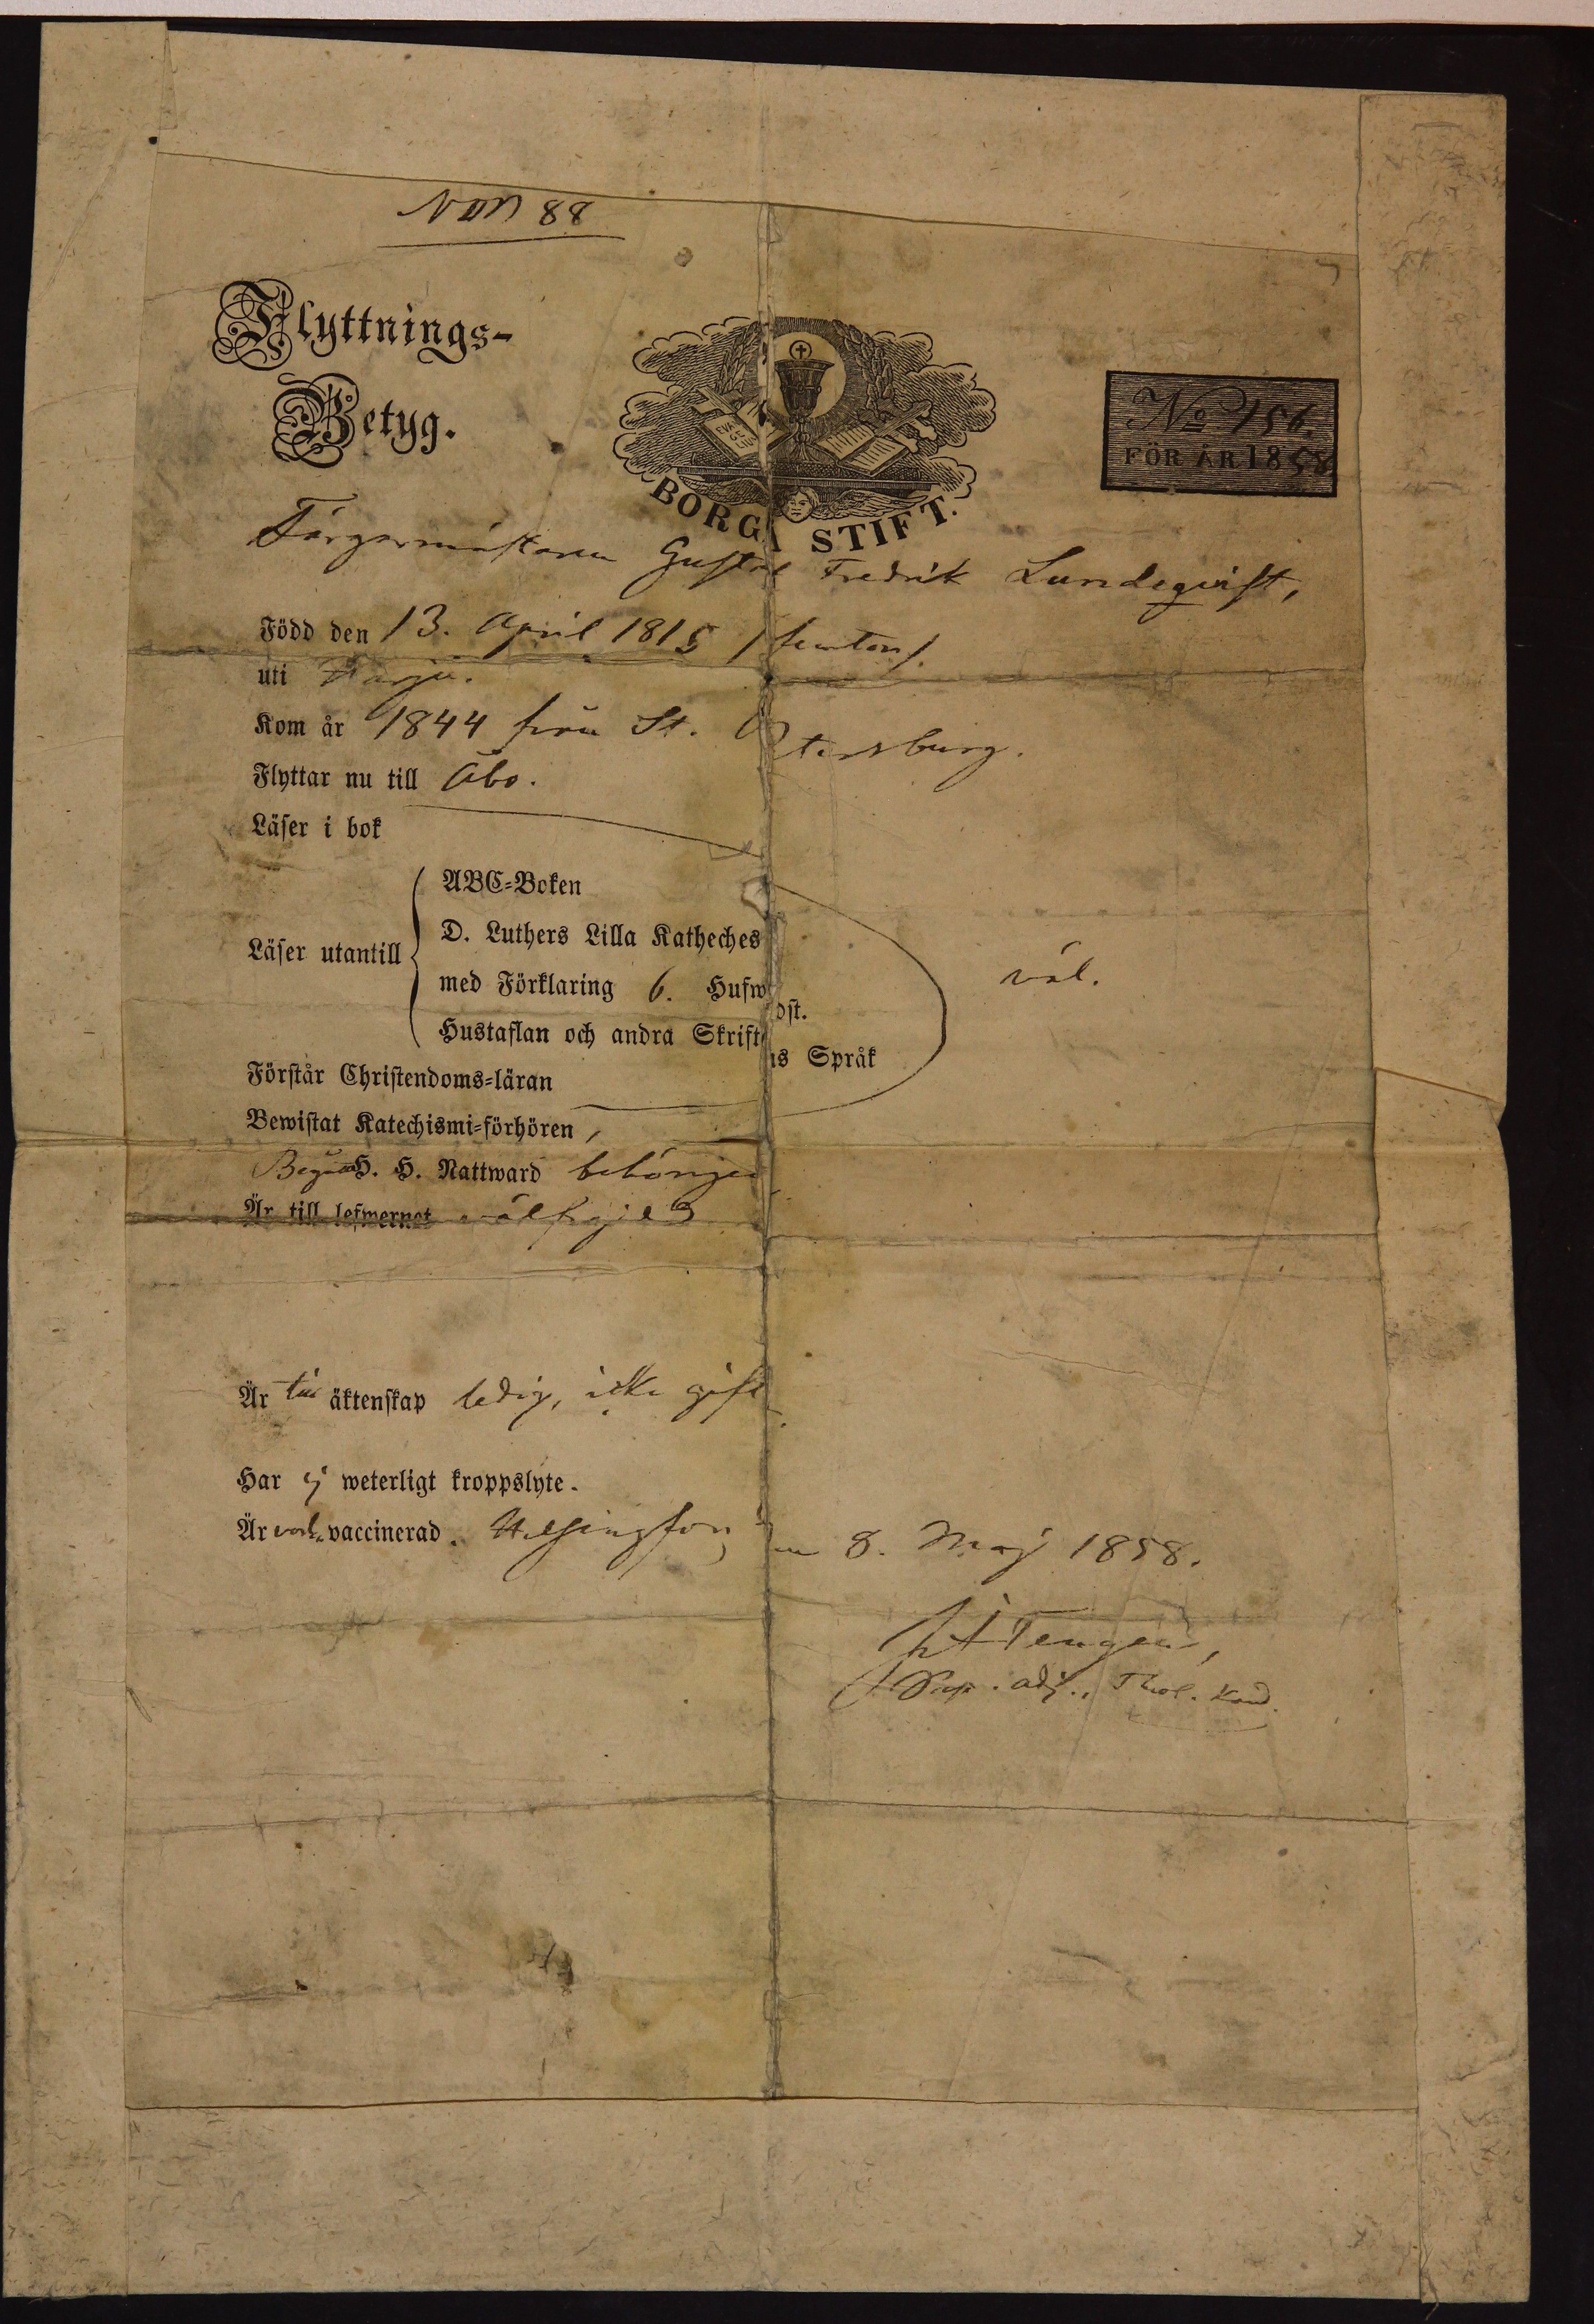 88
Flyttnings-
Betyg.
EVAN
GE
LIUM
BORGÅ STIFT.
No 156.
FÖR ÅR 1858
Färgaremästaren Gustaf Fredrik Lundeqvist,
Född den 13. April 1815 /femton/.
uti
Kom år 1844 från St. Petersburg.
Flyttar nu till Åbo.
Läser i bok
Läser utantill
ABC-Boken
D. Luthers Lilla Katheches
med Förklaring 6. Hufw dst.
Hustaflan och andra Skriftens Språk
Förstår Christendoms-läran
väl.
Bewistat Katechismi-förhören,
Begått H. H. Nattward behörigen
Är till lefwernet välfrejdad
Är till äktenskap ledig, icke gift.
Har ej weterligt kroppslyte.
Är vacc. vaccinerad. Helsingfors, den 8. Maj 1858.
adj., Theol. Kand.